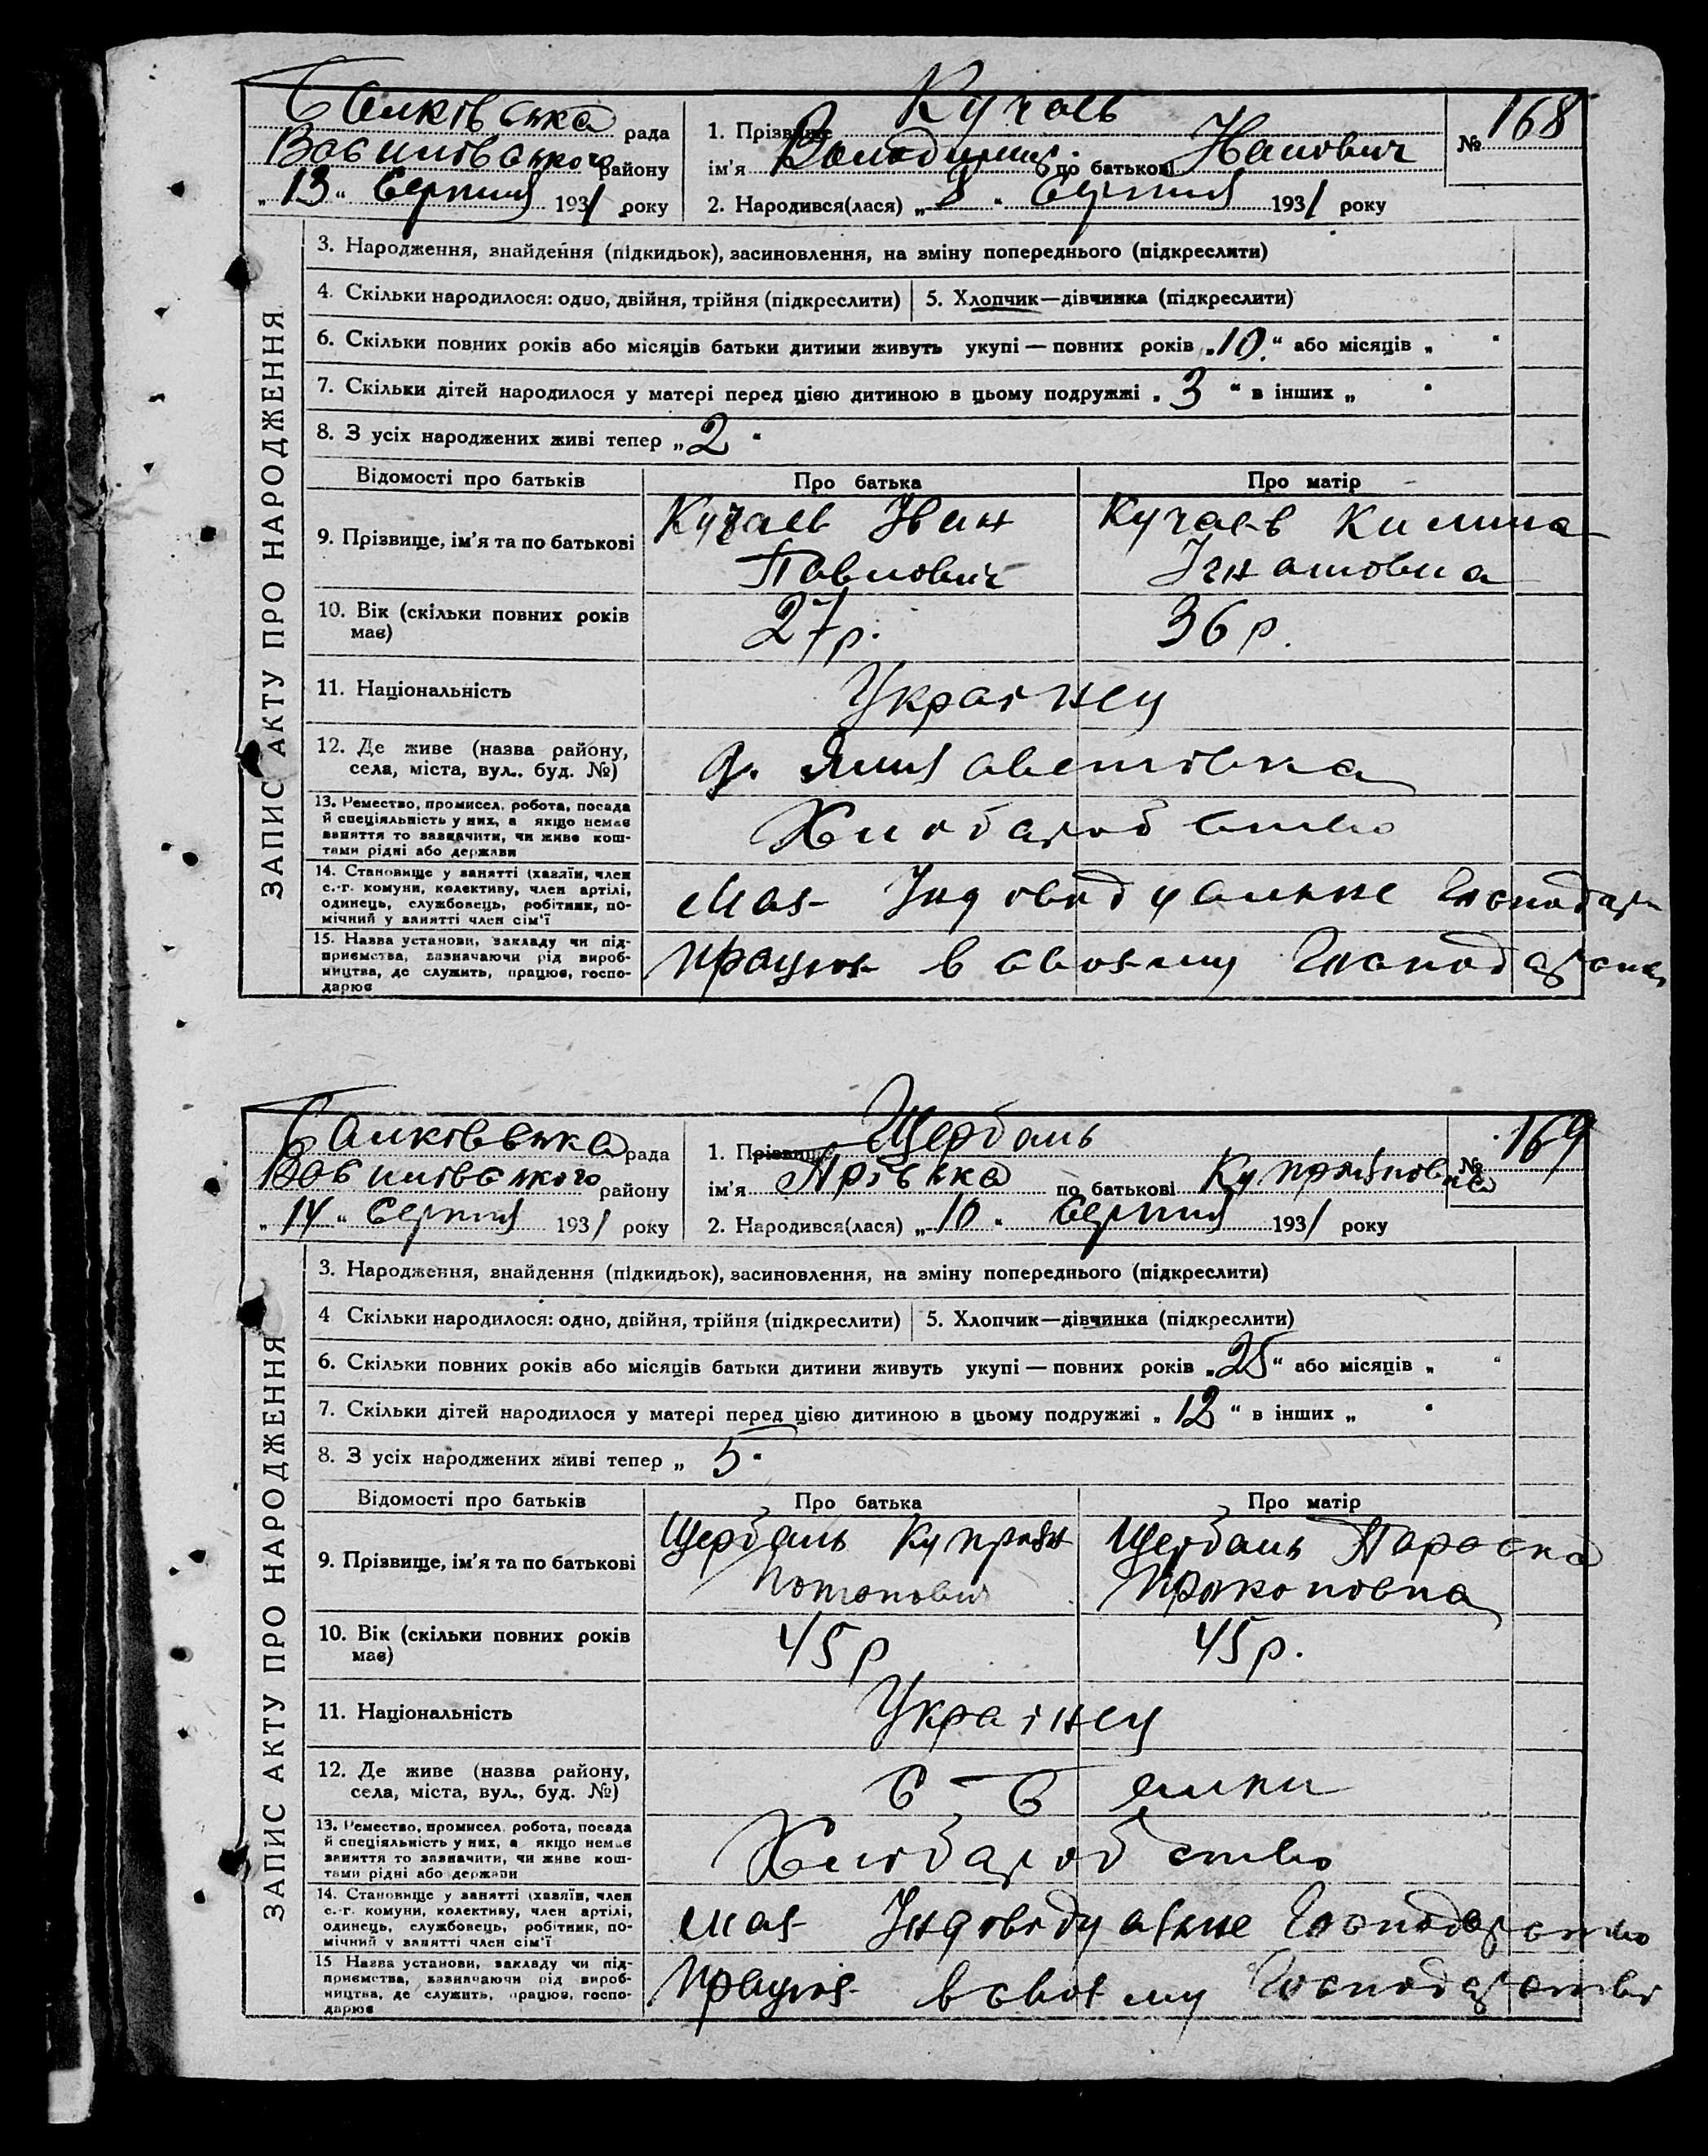 Балківська рада
Василівського району
„13“ Серпня 1931 року
1. Прізвище Кучаєв
ім'я Володимир по батькові Іванович
№ 168
2. Народився(лася) „8“ Серпня 1931 року
ЗАПИС АКТУ ПРО НАРОДЖЕННЯ
3. Народження, знайдення (підкидьок), засиновлення, на зміну попереднього (підкреслити)
4. Скільки народилося: одно, двійня, трійня (підкреслити)
5. Хлопчик—дівчинка (підкреслити)
6. Скільки повних років або місяців батьки дитини живуть укупі — повних років „10.“ або місяців „ “
7. Скільки дітей народилося у матері перед цією дитиною в цьому подружжі „3“ в інших „ “
8. З усіх народжених живі тепер „2“
Відомості про батьків
Про батька
Про матір
9. Прізвище, ім'я та по батькові
Кучаєв Іван
Павлович
Кучаєв Килина
Ігнатовна
10. Вік (скільки повних років
має)
27 р.
36 р.
11. Національність
Українец
12. Де живе (назва району,
села, міста, вул., буд. №)
13. Ремество, промисел, робота, посада
й спеціяльність у них, а якщо немає
заняття то зазначити, чи живе кош-
тами рідні або держави
Хліборобство
14. Становище у занятті (хазяїн, член
с.-г. комуни, колективу, член артілі,
одинець, службовець, робітник, по-
мічний у занятті член сім'ї
має Індивідуальне Господар
15. Назва установи, закладу чи під-
приємства, зазначаючи рід вироб-
ництва, де служить, працює, госпо-
дарює
працює в своєму
Балківська рада
Василівського району
„14“ Серпня 1931 року
1. Прізвище Щербань
ім'я Прiська по батькові Купріяновна
№ 169
2. Народився(лася) „10“ Серпня 1931 року
ЗАПИС АКТУ ПРО НАРОДЖЕННЯ
3. Народження, знайдення (підкидьок), засиновлення, на зміну попереднього (підкреслити)
4 Скільки народилося: одно, двійня, трійня (підкреслити)
5. Хлопчик—дівчинка (підкреслити)
6. Скільки повних років або місяців батьки дитини живуть укупі — повних років „25“ або місяців „ “
7. Скільки дітей народилося у матері перед цією дитиною в цьому подружжі „12“ в інших „ “
8. З усіх народжених живі тепер „5“
Відомості про батьків
Про батька
Про матір
9. Прізвище, ім'я та по батькові
Щербань Купріян
Потапович
Щербань Параска
Прокоповна
10. Вік (скільки повних років
має)
45 р
45 р.
11. Національність
Українец
12. Де живе (назва району,
села, міста, вул., буд. №)
с. Балки
13. Ремество, промисел, робота, посада
й спеціяльність у них, а якщо немає
заняття то зазначити, чи живе кош-
тами рідні або держави
Хліборобство
14. Становище у занятті (хазяїн, член
с.-г. комуни, колективу, член артілі,
одинець, службовець, робітник, по-
мічний у занятті член сім'ї
має Індивідуальне Господарство
15 Назва установи, закладу чи під-
приємства, зазначаючи рід вироб-
ництва, де служить, працює, госпо-
дарює
працює в своєму Господарстві